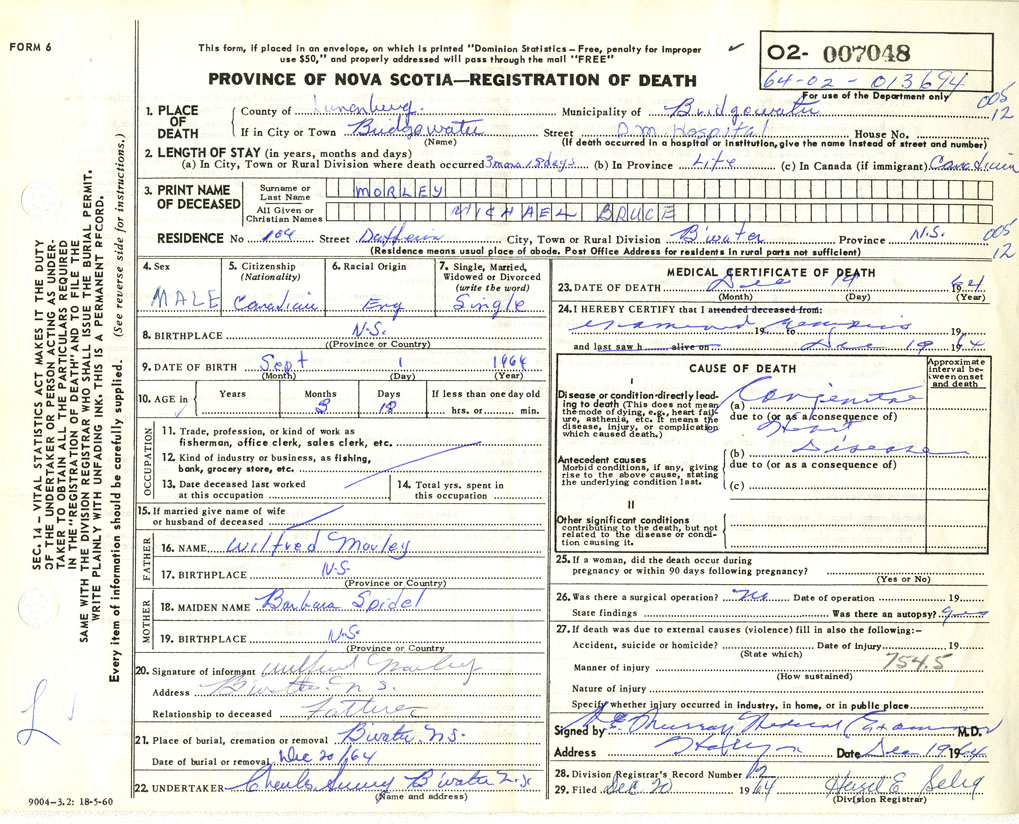 FORM 6
This form, if placed in an envelope, on which is printed "Dominion Statistics – Free, penalty for improper
use $50," and properly addressed will pass through the mail "FREE"
PROVINCE OF NOVA SCOTIA—REGISTRATION OF DEATH
02- 007048
64-02-013694
For use of the Department only
005
12
1. PLACE OF DEATH
County of Lunenburg. Municipality of Bridgewater
If in City or Town Bridgewater Street D.M. Hospital House No.
(Name) (If death occurred in a hospital or institution, give the name instead of street and number)
2. LENGTH OF STAY (in years, months and days)
(a) In City, Town or Rural Division where death occurred 3 mons 18 days (b) In Province Life (c) In Canada (if immigrant) Canadian
3. PRINT NAME OF DECEASED
Surname or Last Name MORLEY
All Given or Christian Names MICHAEL BRUCE
RESIDENCE No 104 Street Dufferin City, Town or Rural Division B'water Province N.S.
005
12
(Residence means usual place of abode. Post Office Address for residents in rural parts not sufficient)
4. Sex
MALE
5. Citizenship (Nationality)
Canadian
6. Racial Origin
Eng
7. Single, Married, Widowed or Divorced (write the word)
Single
8. BIRTHPLACE N.S.
((Province or Country)
9. DATE OF BIRTH Sept 1 1964
(Month) (Day) (Year)
10. AGE in Years Months Days If less than one day old
3 18 hrs. or min.
OCCUPATION
11. Trade, profession, or kind of work as
fisherman, office clerk, sales clerk, etc.
12. Kind of industry or business, as fishing,
bank, grocery store, etc.
13. Date deceased last worked
at this occupation
14. Total yrs. spent in
this occupation
15. If married give name of wife
or husband of deceased
FATHER
16. NAME Wilfred Morley
17. BIRTHPLACE N.S.
(Province or Country)
MOTHER
18. MAIDEN NAME Barbara Spidel
19. BIRTHPLACE N.S.
(Province or Country
20. Signature of informant Wilfred Morley
Address B'water N.S.
Relationship to deceased Father
21. Place of burial, cremation or removal B'water N.S.
Date of burial or removal Dec 20/64
22. UNDERTAKER Charles B'water N.S.
(Name and address)
9004–3.2: 18-5-60
MEDICAL CERTIFICATE OF DEATH
23. DATE OF DEATH Dec 19 1964
(Month) (Day) (Year)
24. I HEREBY CERTIFY that I attended deceased from:
examined remains 19 to 19
and last saw h alive on Dec 19 1964
CAUSE OF DEATH
Approximate interval between onset and death
I
Disease or condition directly leading to death (This does not mean the mode of dying, e.g., heart failure, asthenia, etc. It means the disease, injury, or complication which caused death.)
(a) Congenital
due to (or as a consequence of)
Heart
(b) Disease
due to (or as a consequence of)
(c)
Antecedent causes
Morbid conditions, if any, giving rise to the above cause, stating the underlying condition last.
II
Other significant conditions
contributing to the death, but not related to the disease or condition causing it.
25. If a woman, did the death occur during
pregnancy or within 90 days following pregnancy?
(Yes or No)
26. Was there a surgical operation? no Date of operation 19
State findings Was there an autopsy?
27. If death was due to external causes (violence) fill in also the following:–
Accident, suicide or homicide? Date of injury 19
(State which)
754.5
Manner of injury
(How sustained)
Nature of injury
Specify whether injury occurred in industry, in home, or in public place
Signed by Murray Medical Examiner M.D.
Address Date Dec 19 1964
28. Division Registrar's Record Number 12
29. Filed Dec 20 1964 Hazel E Selig
(Division Registrar)
SEC. 14 – VITAL STATISTICS ACT MAKES IT THE DUTY
OF THE UNDERTAKER OR PERSON ACTING AS UNDER-
TAKER TO OBTAIN ALL THE PARTICULARS REQUIRED
IN THE "REGISTRATION OF DEATH" AND TO FILE THE
SAME WITH THE DIVISION REGISTRAR WHO SHALL ISSUE THE BURIAL PERMIT.
WRITE PLAINLY WITH UNFADING INK. THIS IS A PERMANENT RECORD.
Every item of information should be carefully supplied. (See reverse side for instructions.)